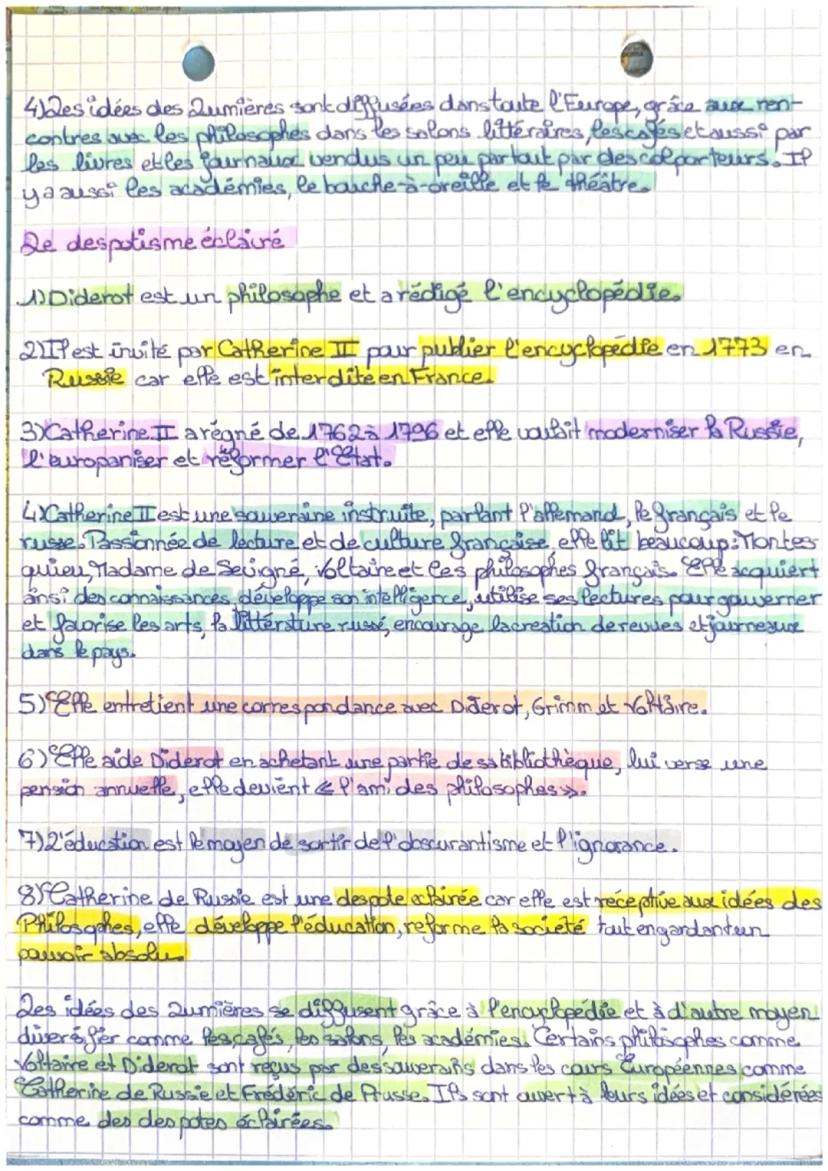 4) Les idées des Lumières sont diffusées dans toute l'Europe, grâce aux ren-
contres avec les philosophes dans les salons littéraires, les cafés et aussi par
les livres et les journaux vendus un peu partout par des colporteurs. Il
y a aussi les académies, le bouche-à-oreille et le théâtre.
Le despotisme éclairé
1) Diderot est un philosophe et a rédigé l'encyclopédie.
2) Il est invité par Catherine II pour publier l'encyclopédie en 1773 en
Russie car elle est interdite en France.
3) Catherine II a régné de 1762 à 1796 et elle voulait moderniser la Russie,
l'europaniser et réformer l'Etat.
4) Catherine II est une souveraine instruite, parlant l'allemand, le français et le
russe. Passionnée de lecture et de culture française, elle lit beaucoup : Montes
quieu, Madame de Sevigné, Voltaire et les philosophes français. Elle acquiert
ainsi des connaissances, développe son intelligence, utilise ses lectures pour gouverner
et favorise les arts, la littérature russe, encourage la creation de revues et journeaux
dans le pays.
5) Elle entretient une correspondance avec Diderot, Grimm et Voltaire.
6) Elle aide Diderot en achetant une partie de sa bibliothèque, lui verse une
pension annuelle, elle devient « l'ami des philosophes ».
7) L'éducation est le moyen de sortir de l'obscurantisme et l'ignorance.
8) Catherine de Russie est une despote eclairée car elle est réceptive aux idées des
Philosophes, elle développe l'éducation, reforme la société tout en gardant un
pouvoir absolu.
Les idées des Lumières se diffusent grâce à l'encyclopédie et à d'autre moyen
diversifier comme les cafés, les salons, les académies. Certains philosophes comme
Voltaire et Diderot sont reçus par des souverains dans les cours Européennes comme
Catherine de Russie et Frédéric de Prusse. Ils sont ouvert à leurs idées et considérées
comme des despotes éclairées.